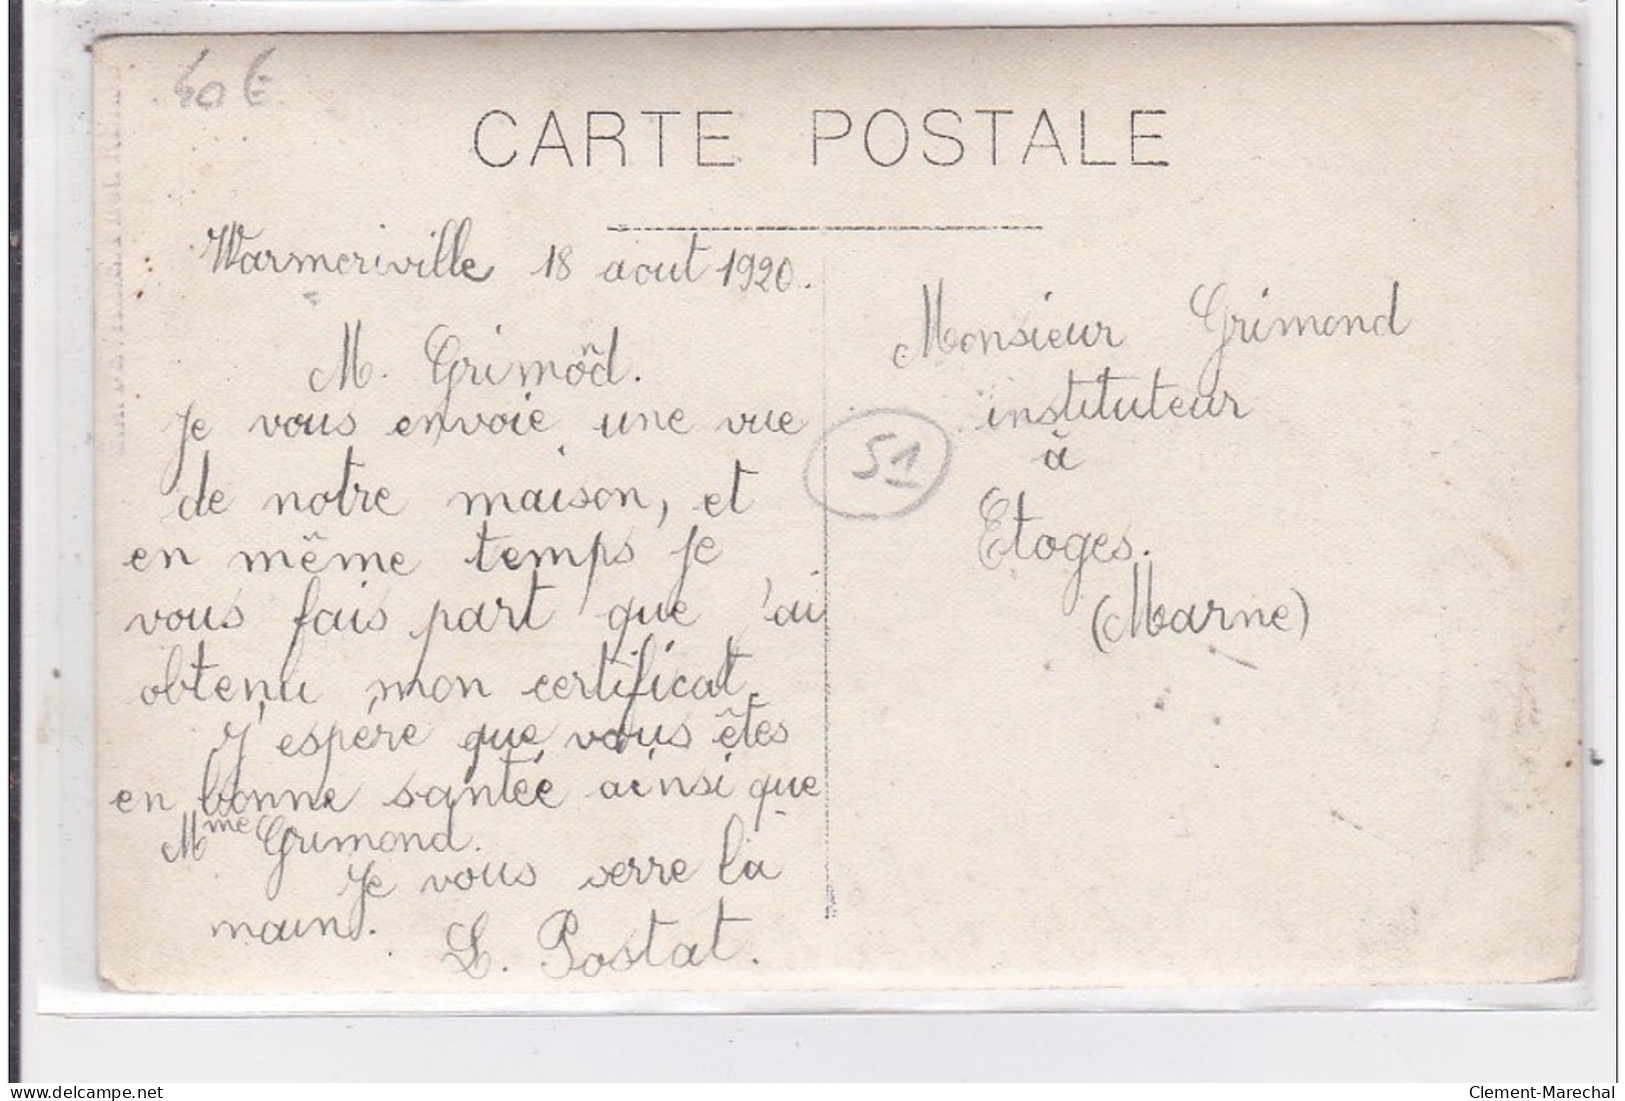 40 €
CARTE POSTALE
Warmeriville 18 aout 1920.
M. Grimond.
Je vous envoie une vue
de notre maison, et
en même temps je
vous fais part que j'ai
obtenu mon certificat.
J'espère que vous êtes
en bonne santée ainsi que
Mme Grimond.
Je vous serre la
main.
L. Postat.
51
Monsieur Grimond
instituteur
à
Etoges.
(Marne)
delcampe.net
Clement-Marechal